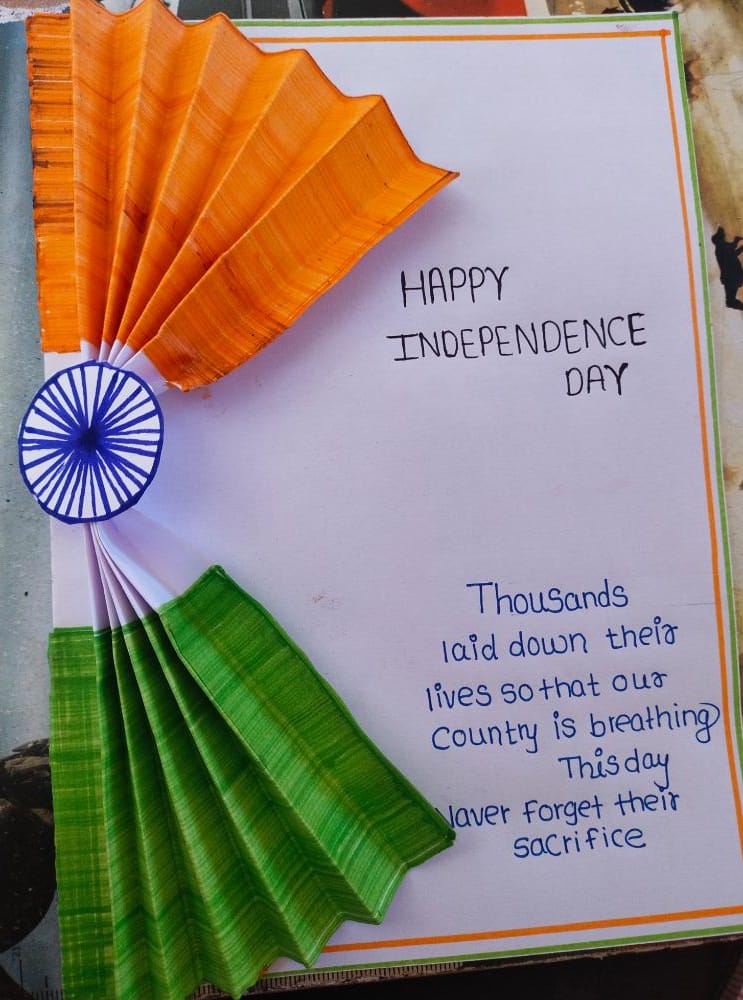 HAPPY
INDEPENDENCE
DAY
Thousands
laid down their
lives so that our
Country is breathing
This day
Naver forget their
sacrifice